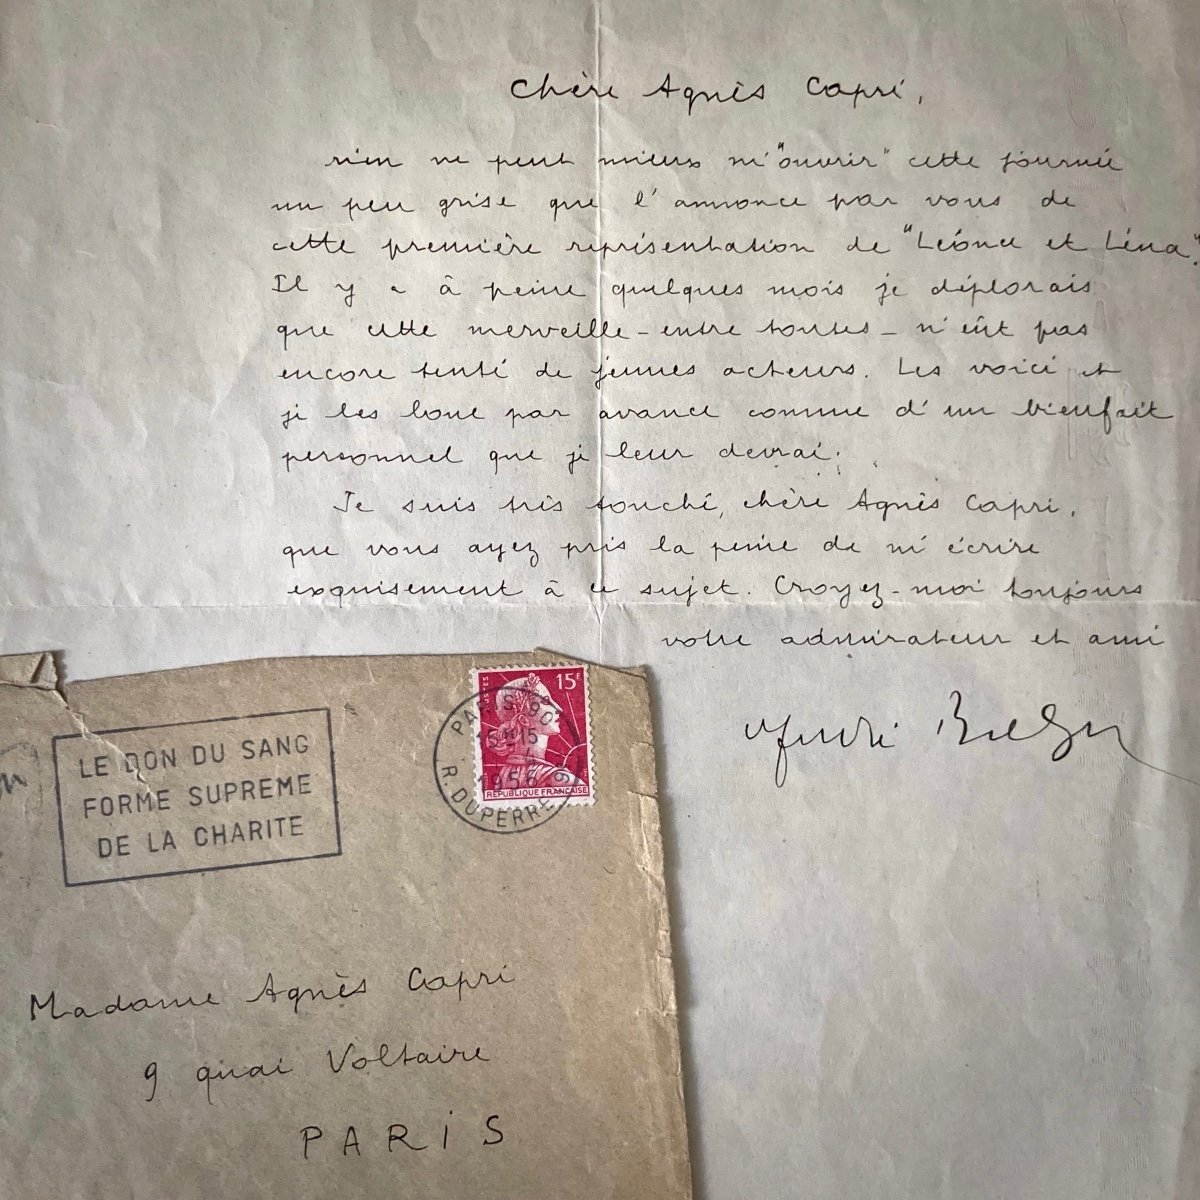 Chère Agnès Capri,
rien ne peut mieux m'"ouvrir" cette journée
un peu grise que l'annonce par vous de
cette première représentation de "Léonce et Léna".
Il y a à peine quelques mois je déplorais
que cette merveille - entre toutes - n'eût pas
encore tenté de jeunes acteurs. Les voici et
je les loue par avance comme d'un bienfait
personnel que je leur devrai.
Je suis très touché, chère Agnès Capri,
que vous ayez pris la peine de m'écrire
exquisement à ce sujet. Croyez-moi toujours
votre admirateur et ami
LE DON DU SANG
FORME SUPREME
DE LA CHARITE
POSTES
15F
REPUBLIQUE FRANÇAISE
PARIS 90
15H15
1956
R. DUPERRE 9
Madame Agnès Capri
9 quai Voltaire
PARIS